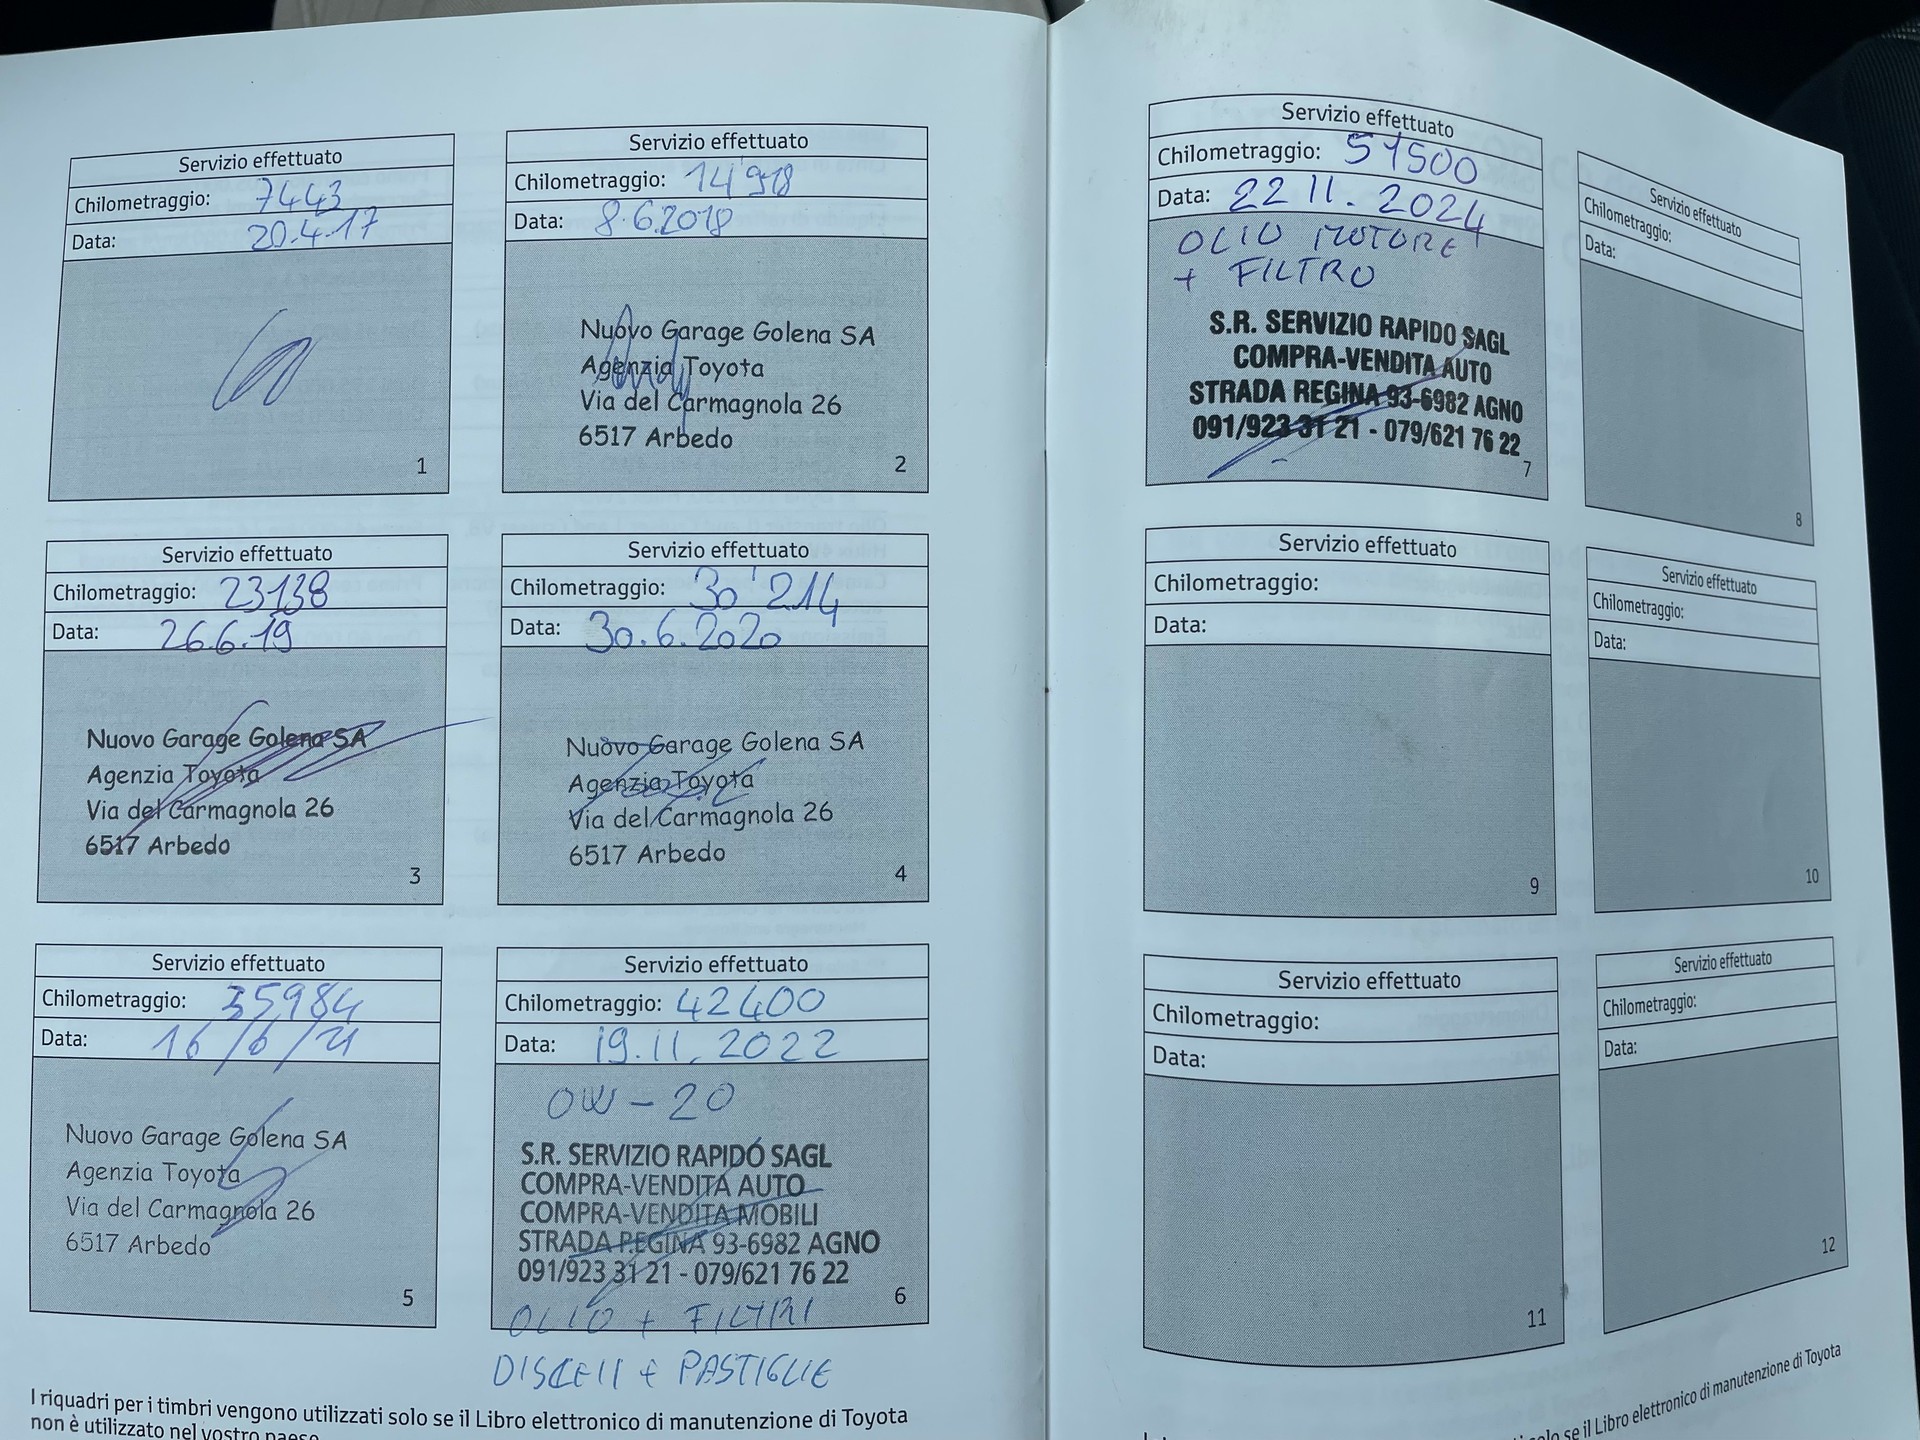 Servizio effettuato
Chilometraggio: 7443
Data: 20.4.17
1
Servizio effettuato
Chilometraggio: 14'918
Data: 8.6.2018
Nuovo Garage Golena SA
Agenzia Toyota
Via del Carmagnola 26
6517 Arbedo
2
Servizio effettuato
Chilometraggio: 23138
Data: 26.6.19
Nuovo Garage Golena SA
Agenzia Toyota
Via del Carmagnola 26
6517 Arbedo
3
Servizio effettuato
Chilometraggio: 30'214
Data: 30.6.2020
Nuovo Garage Golena SA
Agenzia Toyota
Via del Carmagnola 26
6517 Arbedo
4
Servizio effettuato
Chilometraggio: 35984
Data: 16/6/21
Nuovo Garage Golena SA
Agenzia Toyota
Via del Carmagnola 26
6517 Arbedo
5
Servizio effettuato
Chilometraggio: 42400
Data: 19.11.2022
0W-20
S.R. SERVIZIO RAPIDO SAGL
COMPRA-VENDITA AUTO
COMPRA-VENDITA MOBILI
STRADA REGINA 93-6982 AGNO
091/923 31 21 - 079/621 76 22
6
OLIO + FILTRI
DISCHI + PASTIGLIE
I riquadri per i timbri vengono utilizzati solo se il Libro elettronico di manutenzione di Toyota
non è utilizzato nel vostro paese.
Servizio effettuato
Chilometraggio: 51500
Data: 22 11. 2024
OLIO MOTORE
+ FILTRO
S.R. SERVIZIO RAPIDO SAGL
COMPRA-VENDITA AUTO
STRADA REGINA 93-6982 AGNO
091/923 31 21 - 079/621 76 22
7
Servizio effettuato
Chilometraggio:
Data:
8
Servizio effettuato
Chilometraggio:
Data:
9
Servizio effettuato
Chilometraggio:
Data:
10
Servizio effettuato
Chilometraggio:
Data:
11
Servizio effettuato
Chilometraggio:
Data:
12
solo se il Libro elettronico di manutenzione di Toyota